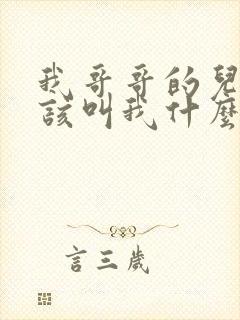 我哥哥的兒
該叫我什麼
言三歲